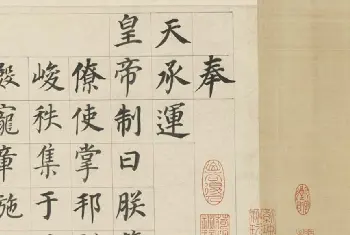 奉
天承運
皇帝制曰朕
僚使掌邦
峻秩集于
殿寵章施